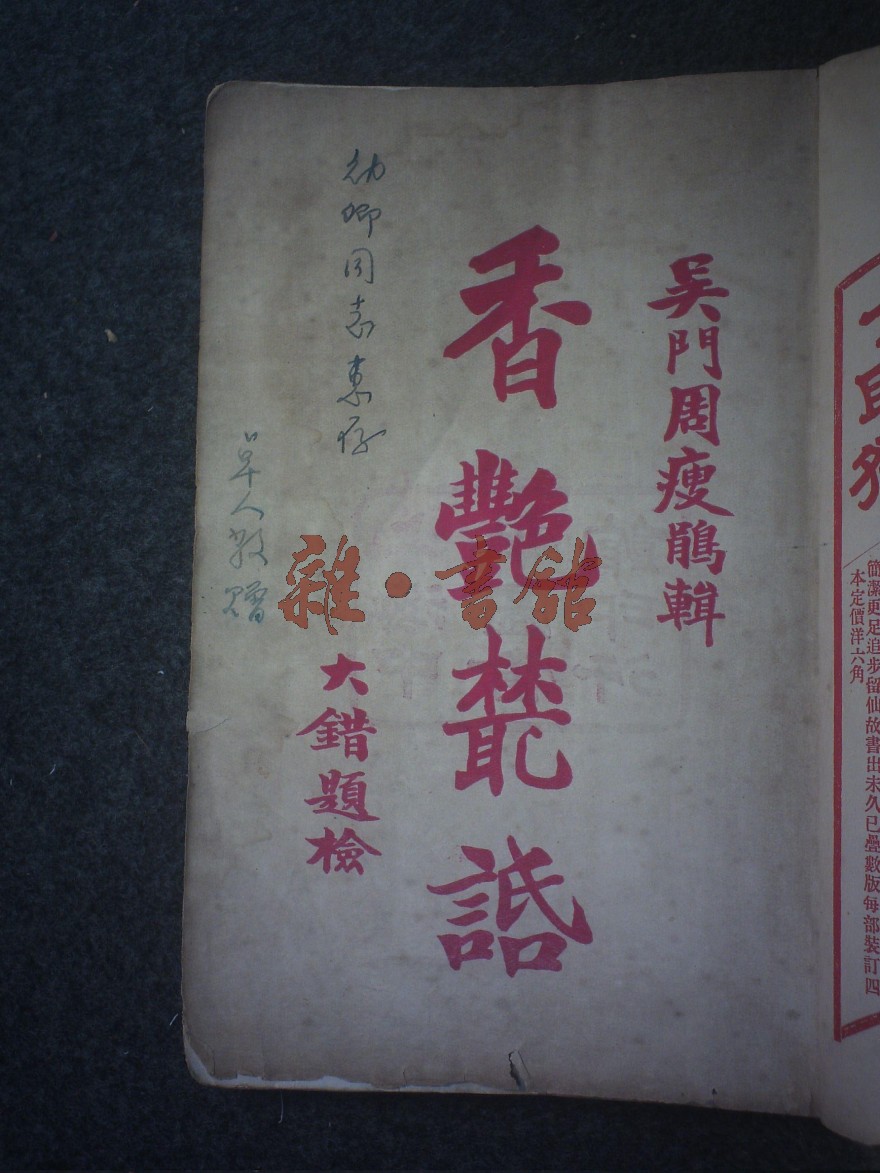 簡潔更足追步留仙故書出未久已疊數版每部裝訂四
本定價洋六角
吳門周瘦鵑輯
香艷叢話
大錯題檢
同志惠存
人敬贈
雜·書館